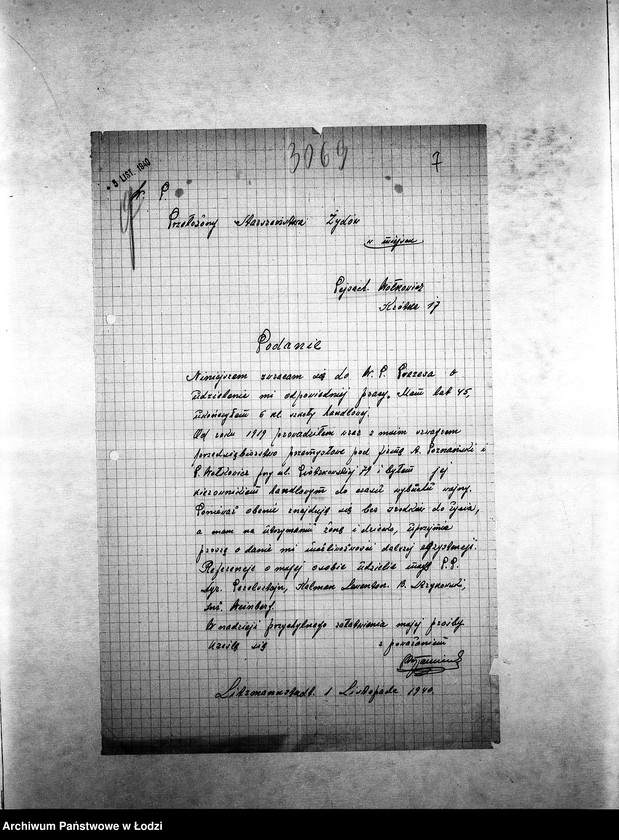 3069
7
5 LIST. 1940
W. P.
Przełożony Starszeństwa Żydów
w miejscu
Pejsach Wołkowicz
Krótka 17
Podanie
Niniejszem zwracam się do W. P. Prezesa o
udzielenie mi odpowiedniej pracy. Mam lat 45,
ukończyłem 6 kl szkoły handlowej.
Od roku 1919 prowadziłem wraz z moim szwagrem
przedsiębiorstwo przemysłowe pod firmą A. Poznański i
P. Wołkowicz przy ul. Piotrkowskiej 79 i byłem jej
kierownikiem handlowym do czasu wybuchu wojny.
Ponieważ obecnie znajduję się bez środków do życia,
a mam na utrzymaniu żonę i dziecko, uprzejmie
proszę o danie mi możliwości dalszej egzystencji.
Referencje o mojej osobie udzielić mogą P.P.
dyr. Kalman Lewenton. B.
Inż. Weinberg.
W nadzieji przychylnego załatwienia mojej prośby
kreślę się z poważaniem
Litzmannstadt. 1 Listopada 1940.
Archiwum Państwowe w Łodzi